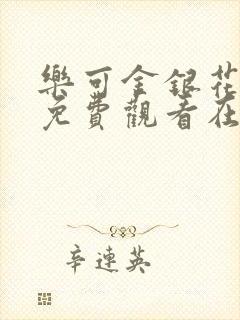 樂可金銀花
免費觀看在
辛連英